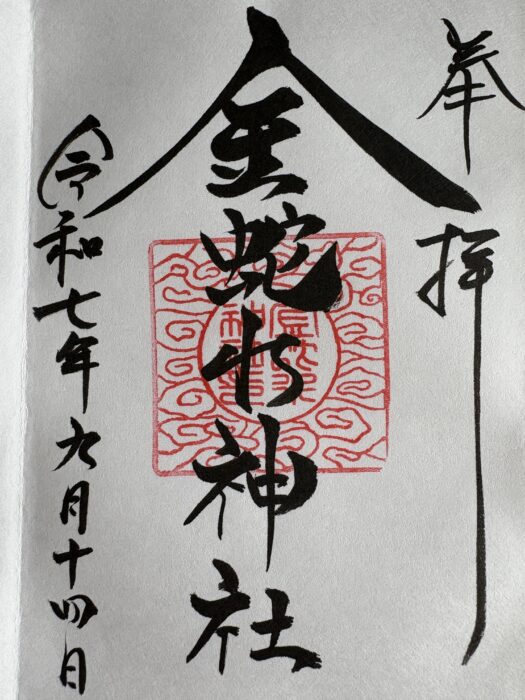 奉拝
金蛇水神社
令和七年九月十四日